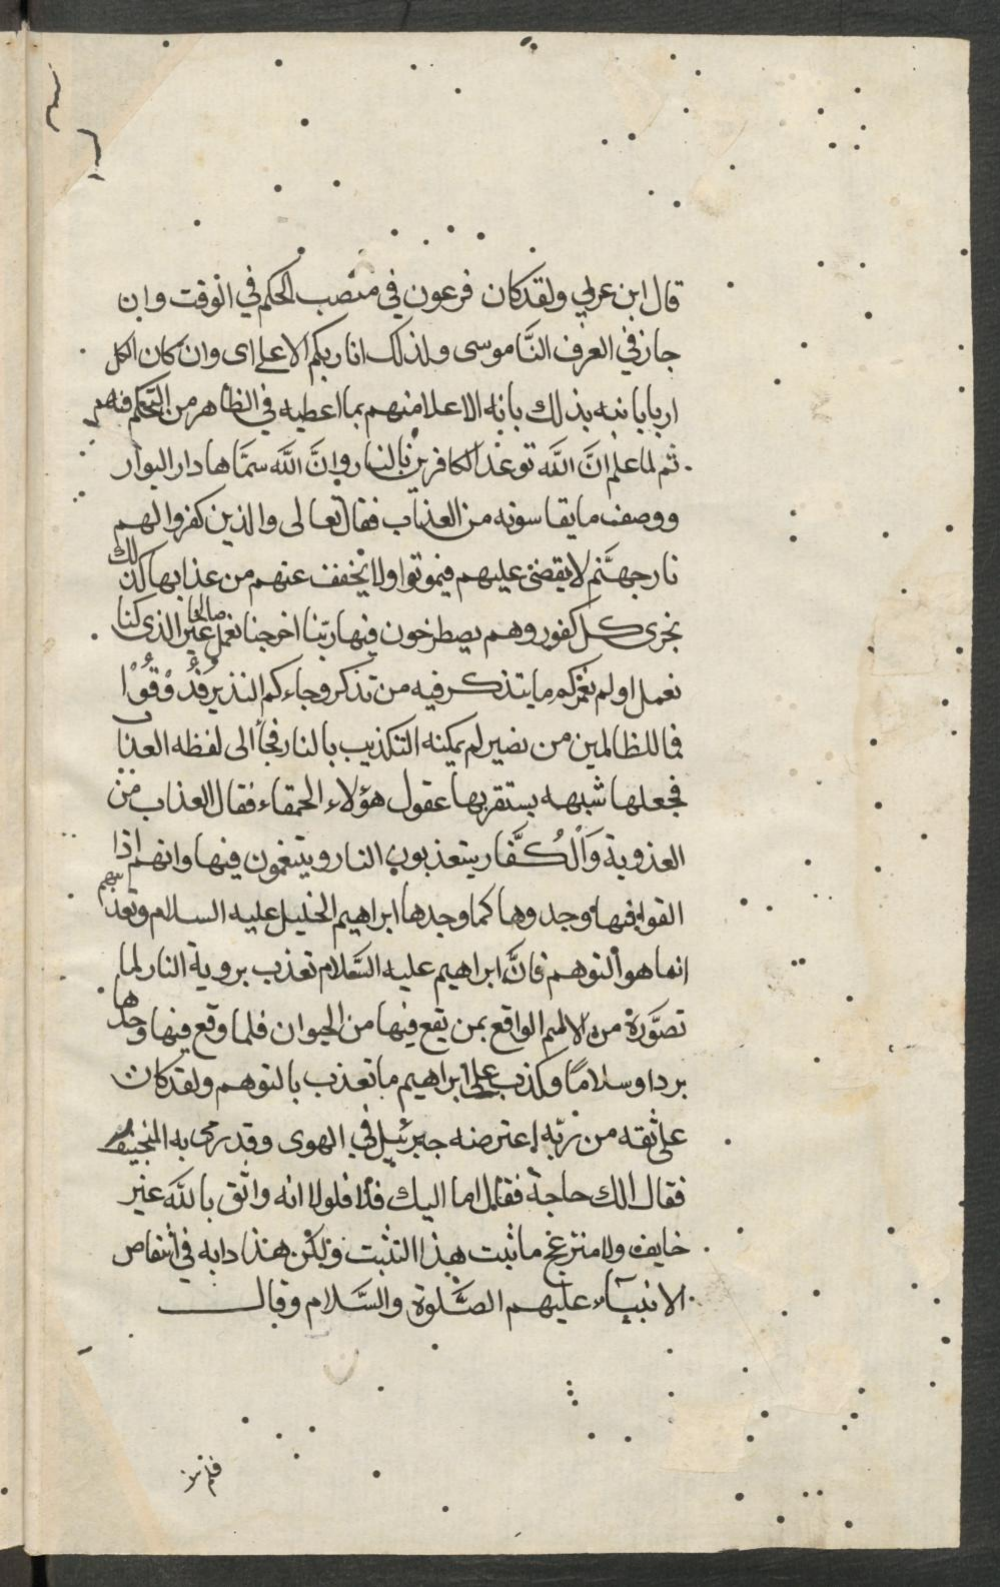 قال ابن عربي ولقد كان فرعون في منصب الحكم في الوقت وان
جاز في العرف الناموسى ولذلك انا ربكم الاعلى اى وان كان الكل
اربابا نبه بذلك بانه الاعلا منهم بما اعطيه في الظاهر من التحكم فيهم
ثم لما علم انَّ الله توعد الكافرين بالنار وانَّ الله سمَّاها دار البوار
ووصف ما يقاسونه من العذاب فقال تعالى والذين كفروا لهم
نار جهنَّم لا يقضى عليهم فيموتوا ولا يخفف عنهم من عذابها كذلك
نجزى كل كفور وهم يصطرخون فيها ربّنا اخرجنا نعمل صالحا غير الذى كنا
نعمل اولم نعمركم ما يتذكر فيه من تذكر وجاءكم النذير فذُوْقُوْا
فما للظالمين من نصير لم يمكنه التكذيب بالنار فجأ الى لفظه العذاب
فجعلها شبهه يستقر بها عقول هؤلاء الحمقاء فقال العذاب من
العذوبة وَالْكُفَّار يتعذبون النار ويتنعمون فيها وانهم اذا
القوا فيها وجدوها كما وجدها ابراهيم الخليل عليه السلام وتعذيبهم
انما هو التوهم فانَّ ابراهيم عليه السَّلام تعذب بروية النار لما
تصوَّرة من الالم الواقع بمن يقع فيها من الحيوان فلما وقع فيها وجدها
بردا وسلامًا وكذب على ابراهيم ما تعذب بالتوهم ولقد كان
على ثقه من ربّه اعترضه جبرئيل في الهوى وقد رمى به المنجنيق
فقال الك حاجة فقال اما اليك فلا فلولا انه واثق بالله غير
خايف ولا منزعج ما ثبت هذا التثبت ولكن هذا دابه في انتقاص
الانبيآء عليهم الصَّلوة والسَّلام وقال